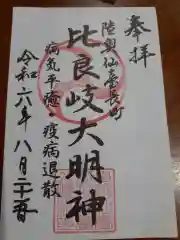 奉拝
陸奥仙臺長町
比良岐大明神
病気平癒・疫病退散
令和六年八月二十一日